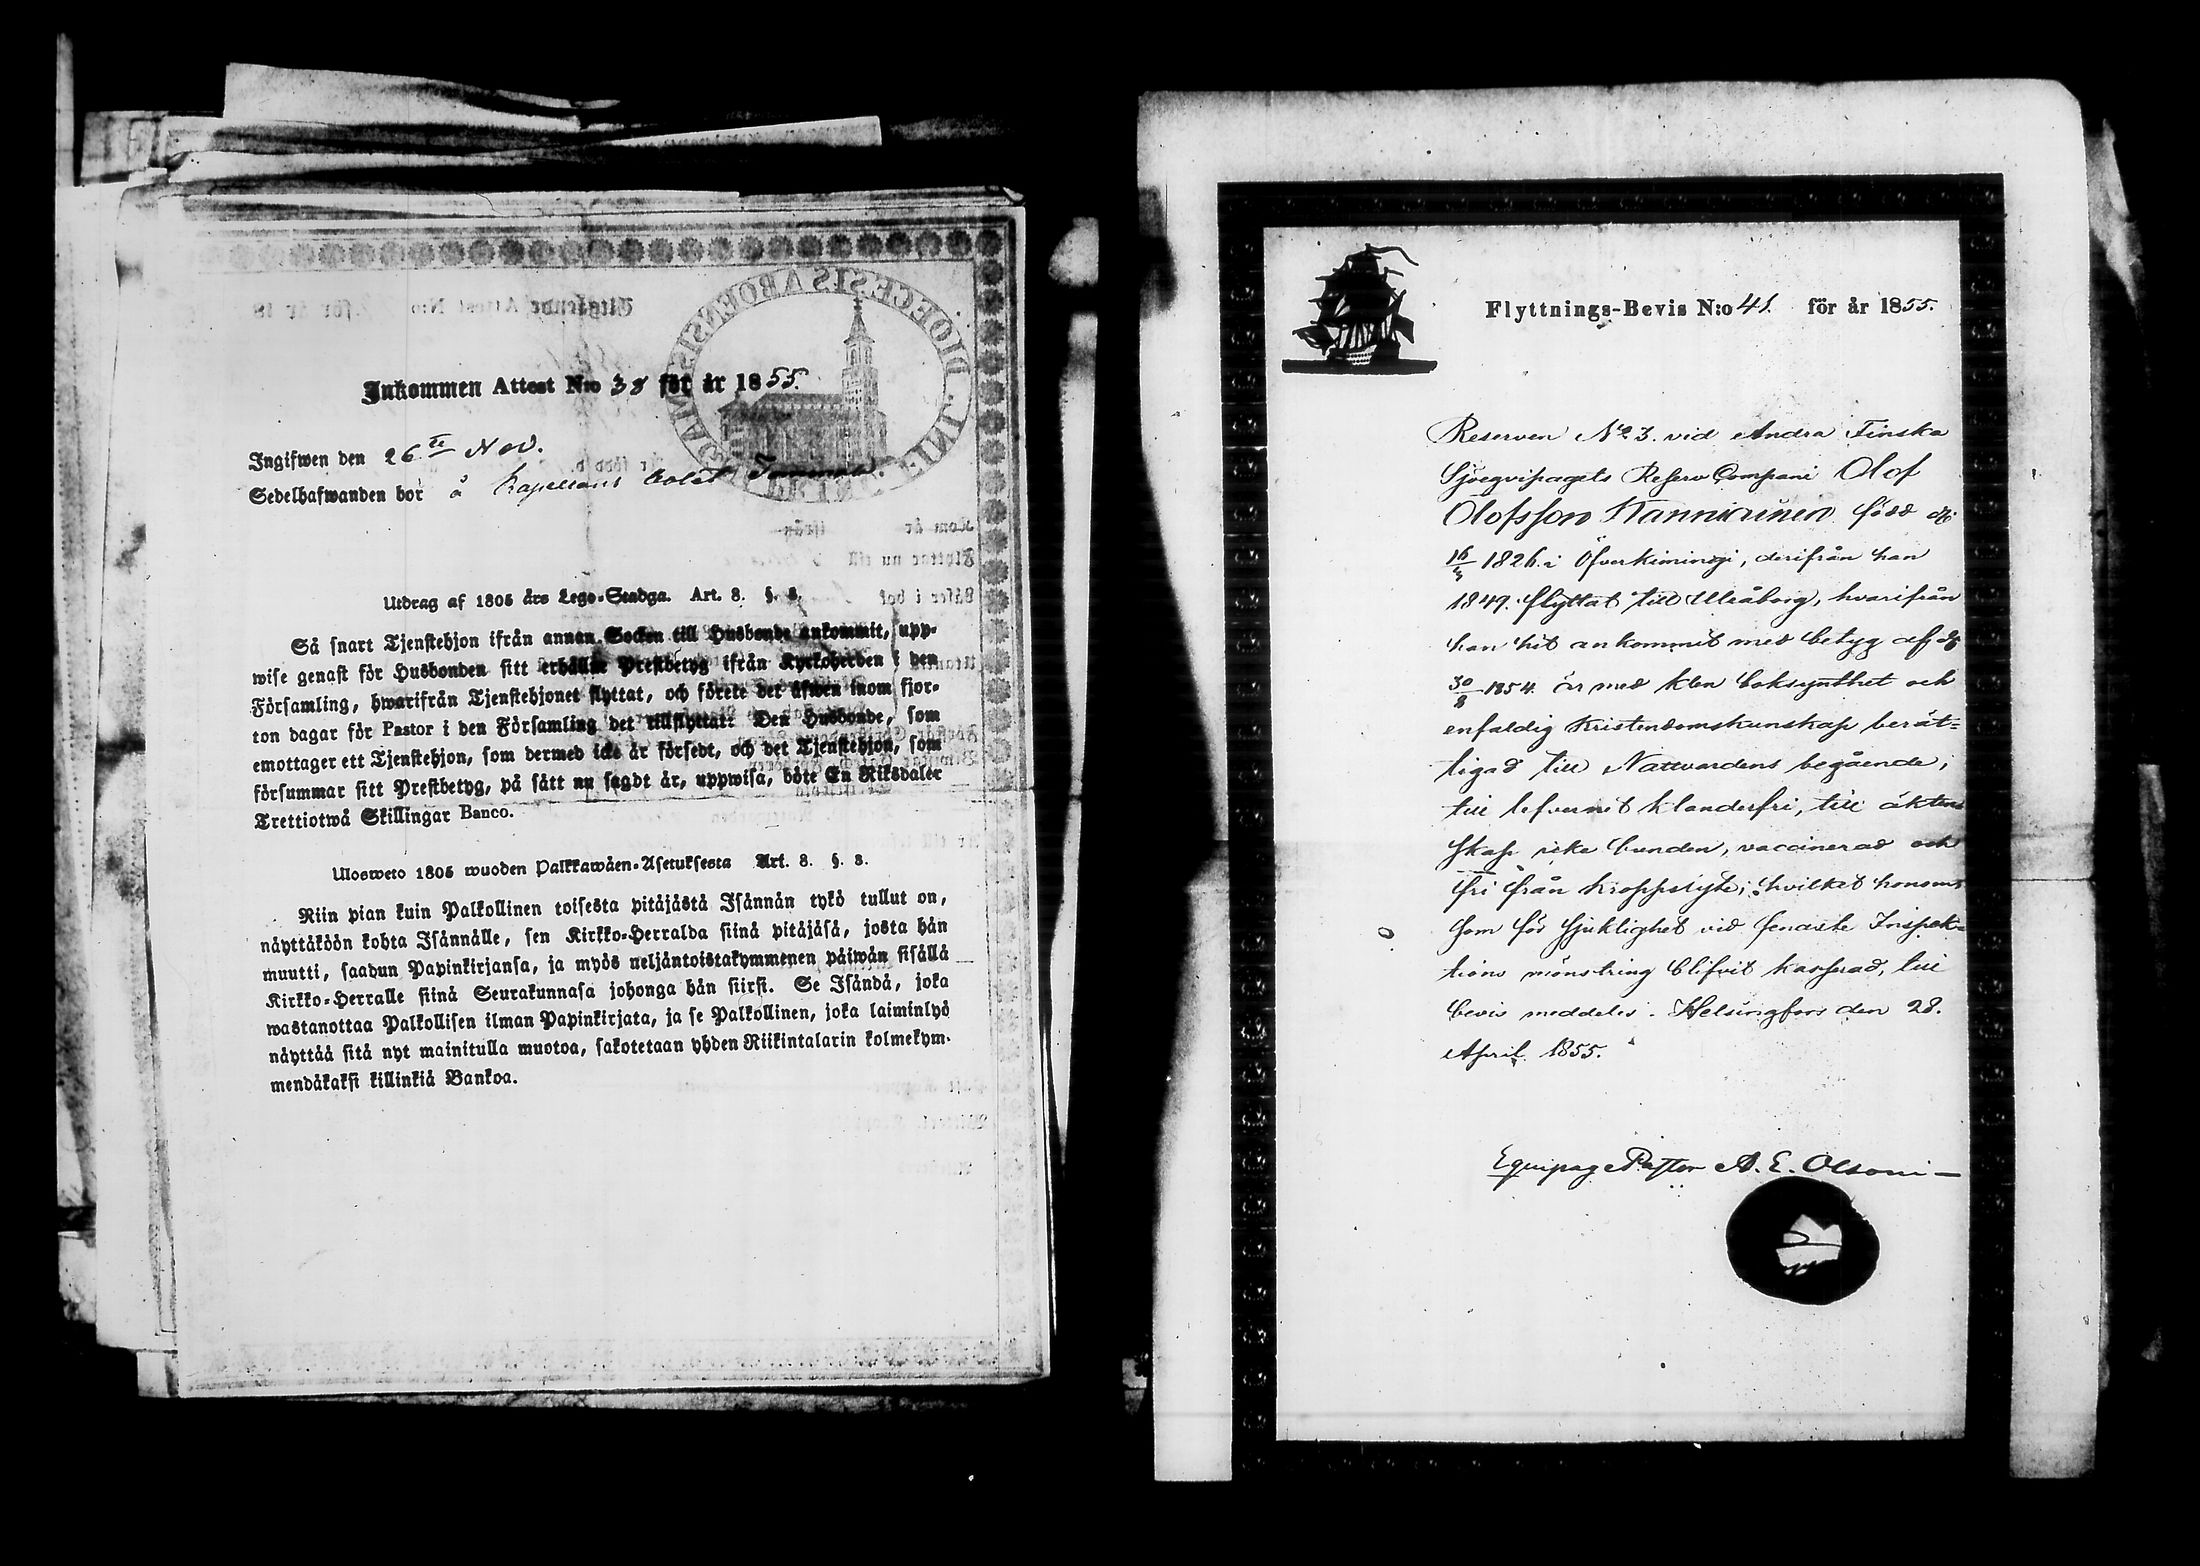 Inkommen Attest N:o 38 för år 1855.
Ingifwen den 26te Nov.
Sedelhafwanden bor å Kapellans bolet
Utdrag af 1805 års Lego-Stadga. Art. 8. §. 3.
Så snart Tjenstehjon ifrån annan Socken till Husbonde ankommit, upp-
wise genast för Husbonden sitt erhållne Prestbetyg ifrån Kyrkoherden i den
Församling, hwarifrån Tjenstehjonet flyttat, och förete det äfwen inom fjor-
ton dagar för Pastor i den Församling det tillflyttat. Den Husbonde, som
emottager ett Tjenstehjon, som dermed icke är försedt, och det Tjenstehjon, som
försummar sitt Prestbetyg, på sätt nu sagdt är, uppwisa, böte En Riksdaler
Trettiotwå Skillingar Banco.
Ulosweto 1805 wuoden Palkkawäen-Asetuksesta Art. 8. §. 3.
Niin pian kuin Palkollinen toisesta pitäjästä Isännän tykö tullut on,
näyttäköön kohta Isännälle, sen Kirkko-Herralda siinä pitäjäsä, josta hän
muutti, saadun Papinkirjansa, ja myös neljäntoistakymmenen päiwän sisällä
Kirkko-Herralle siinä Seurakunnasa johonga hän siirsi. Se Isändä, joka
wastanottaa Palkollisen ilman Papinkirjata, ja se Palkollinen, joka laiminlyö
näyttää sitä nyt mainitulla muotoa, sakotetaan yhden Riikintalarin kolmekym-
mendäkaksi killinkiä Bankoa.
DIOECESIS ABOENSIS
Utgående Attest N:o för år 18
Flyttnings-Bevis N:o 41. för år 1855.
Reserven No 3. vid Andra Finska
Sjöeqvipagets Reserv Compani Olof
Olofsson Hannirinen född d.
16/3 1826. i Öfverkimingi, derifrån han
1849. flyttat till Uleåborg, hvarifrån
han hit ankommit med betyg af d.
30/8 1854. är med klen boksynthet och
enfaldig Kristendomskunskap berät-
tigad till Nattvardens begående,
till lefvernet klanderfri, till äkten
skap icke bunden, vaccinerad och
fri från kroppslyte; hvilket honom
som för sjuklighet vid senaste Inspek-
tions mönstring blifvit kasserad, till
bevis meddelas. Helsingfors den 28.
April 1855.
Equipage Pastor A. E. Olsoni